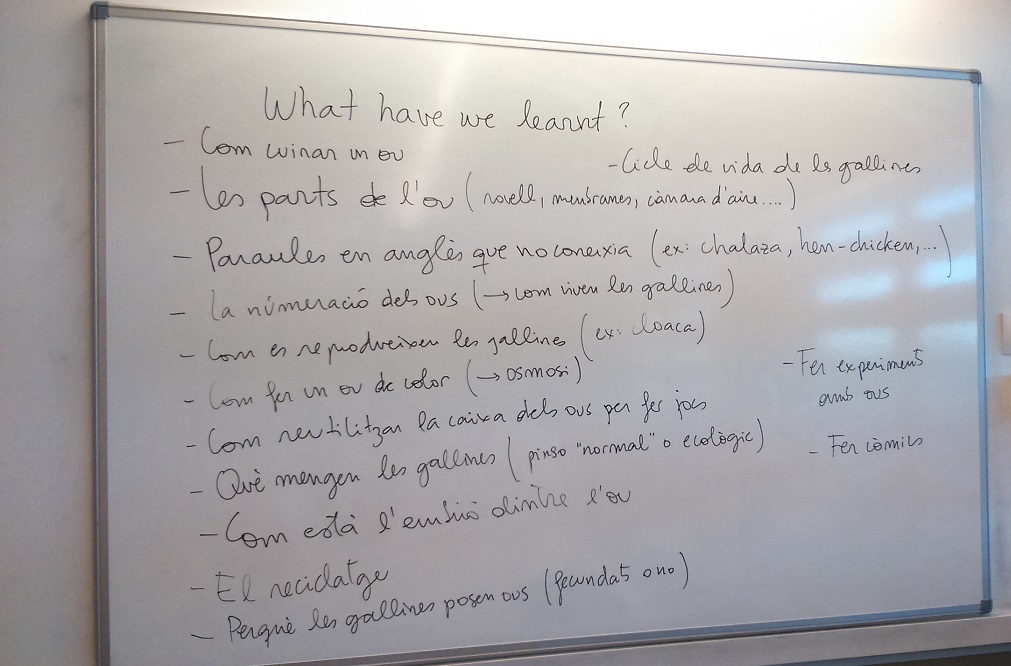 What have we learnt?
- Com cuinar un ou
- Cicle de vida de les gallines
- Les parts de l'ou (rovell, membranes, càmara d'aire....)
- Paraules en anglès que no coneixia (ex: chalaza, hen-chicken,...)
- La númeració dels ous (→ com viven les gallines)
- Com es reprodueixen les gallines (ex: cloaca)
- Com fer un ou de color (→ osmosi)
- Fer experiments
amb ous
- Com reutilitzar la caixa dels ous per fer jocs
- Què mengen les gallines (pinso "normal" o ecològic)
- Fer còmics
- Com està l'embrió dintre l'ou
- El reciclatge
- Perquè les gallines posen ous (fecundats o no)